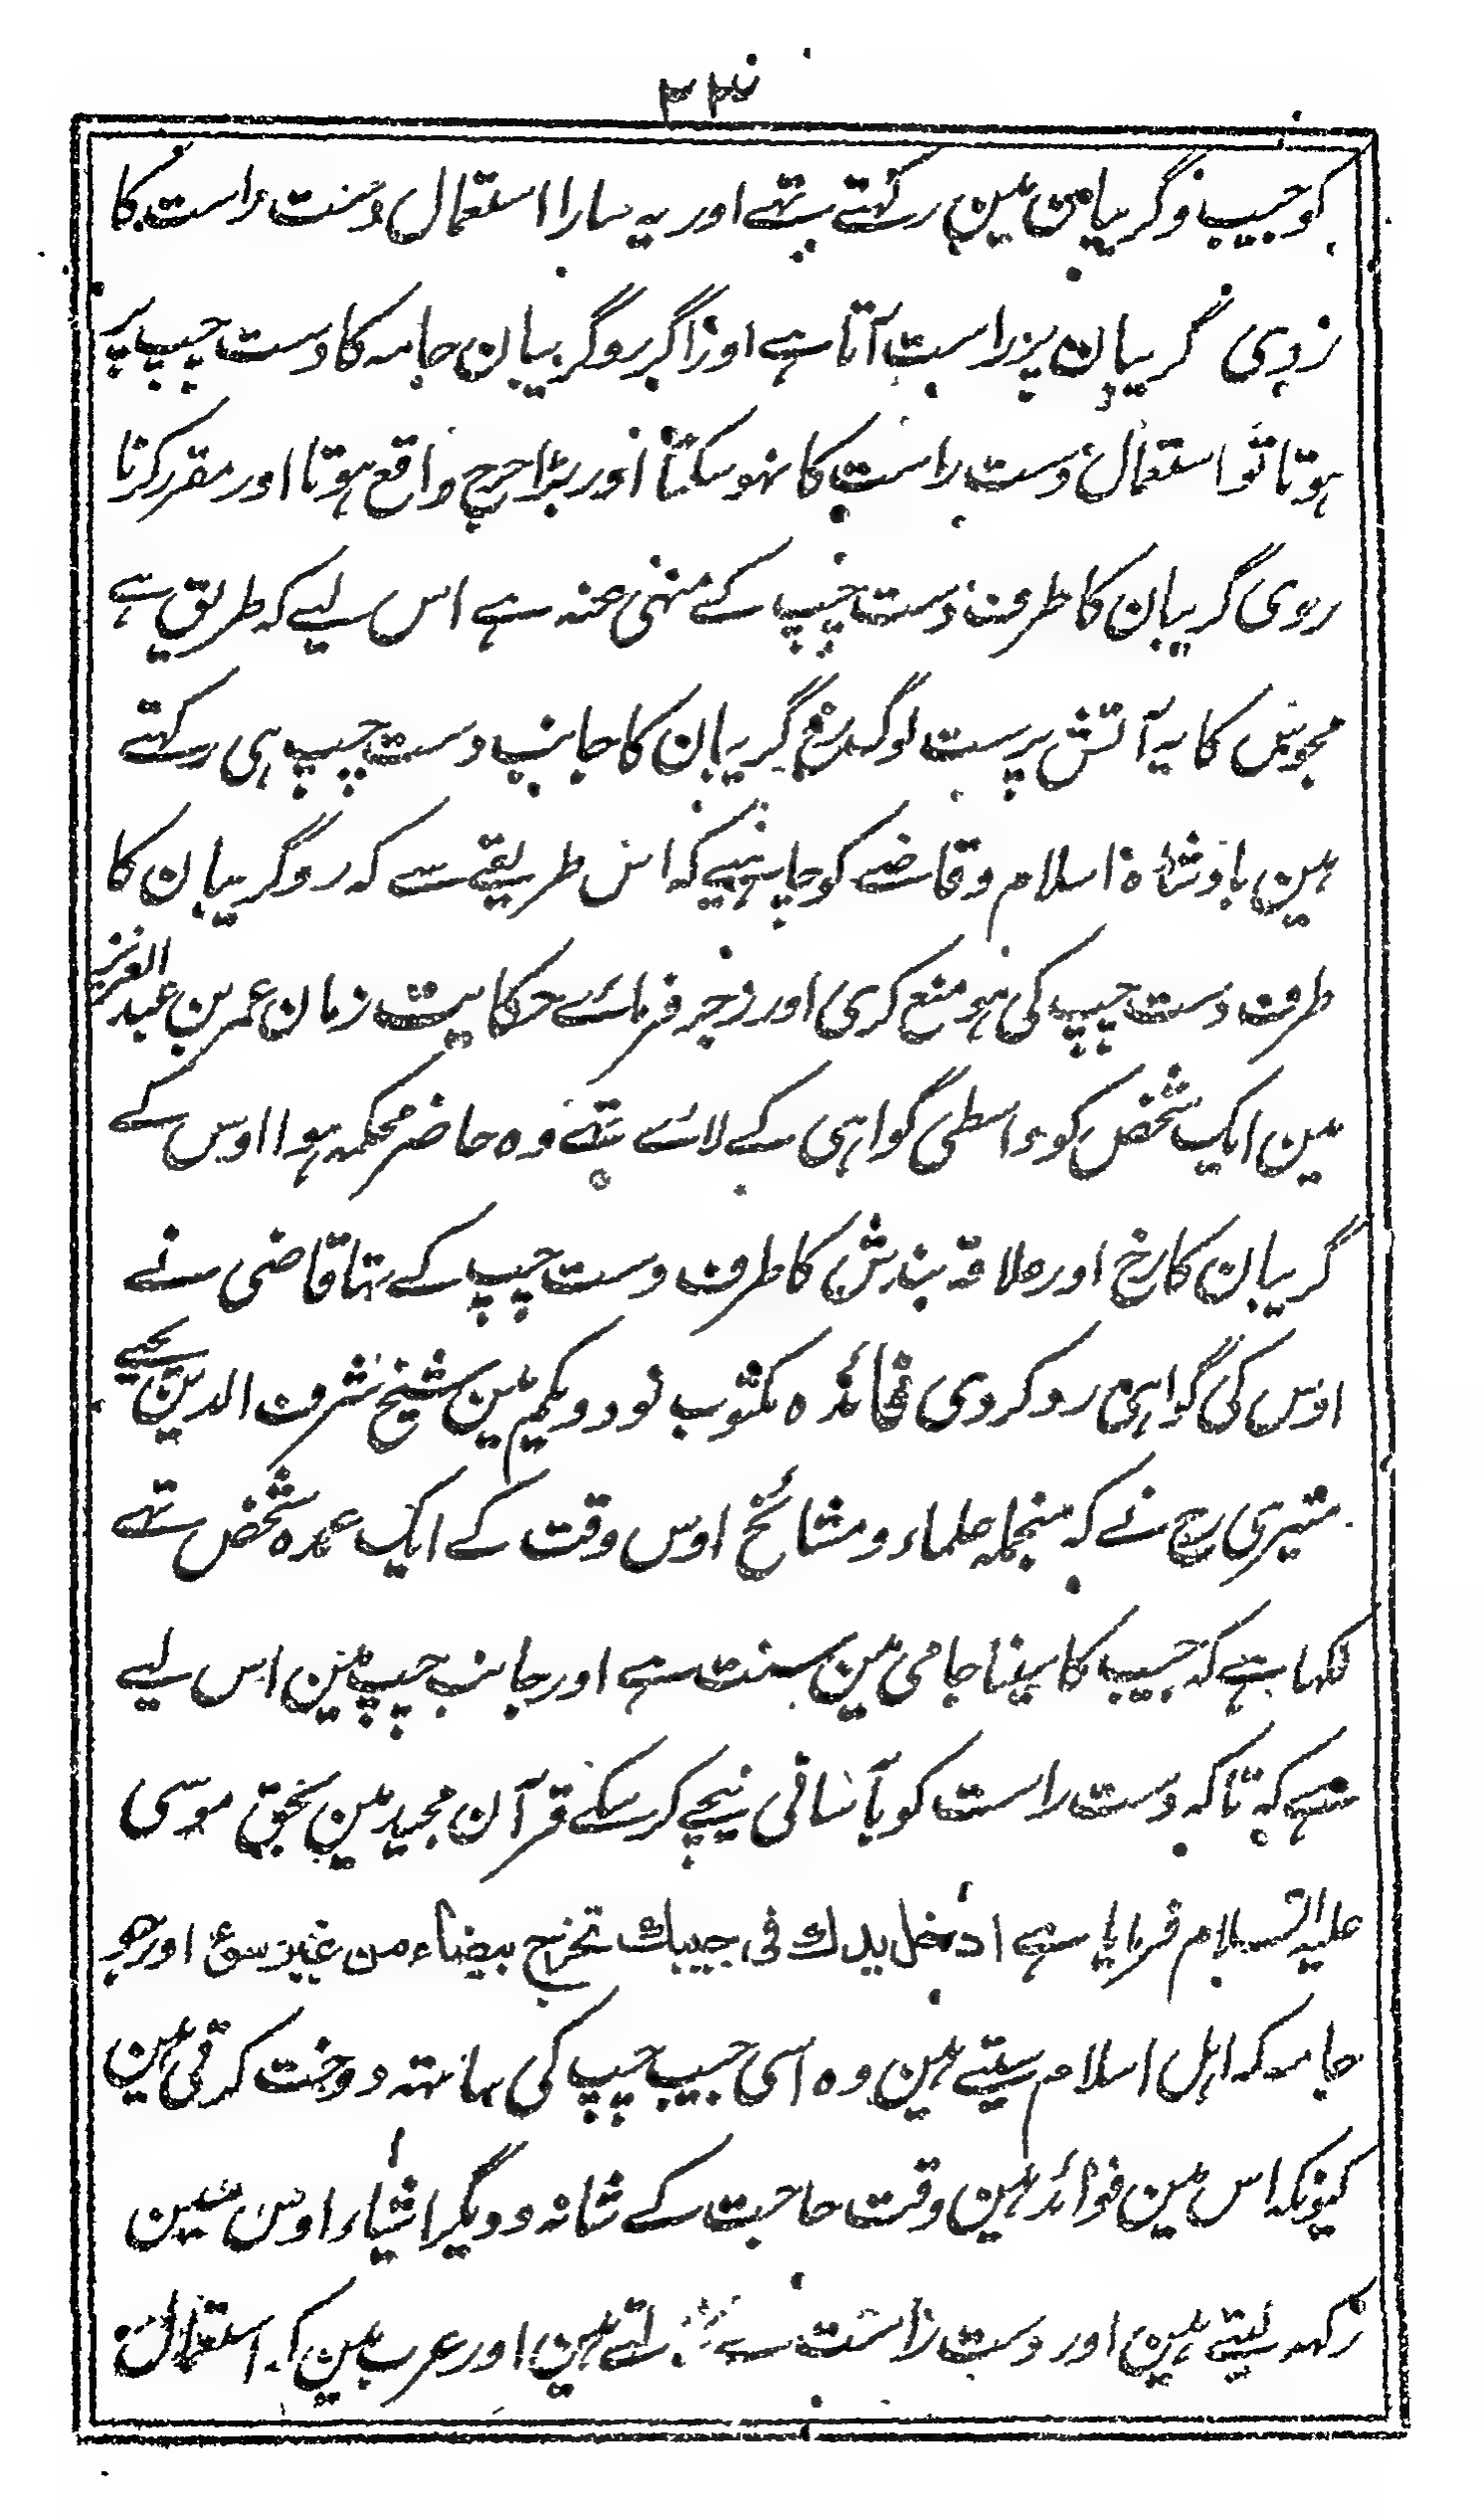 ۲۲۴
کو جیب و گریبان مین رکہتے تہے اور یہ سارا استعمال دست راست کا
روی گریبان پر راست آتا ہے اور اگر رو گریبان جامہ کا دست چپ پر
ہوتا تو استعمال دست راست کا نہو سکتا اور بڑا حرج واقع ہوتا اور مقرر کرنا
روی گریبان کا طرف دست چپ کے منہی عنہ ہے اس لیے کہ طریق ہے
مجوس کا یہ آتش پرست لوگ رخ گریبان کا جانب دست چپ ہی رکہتے
ہین بادشاہ اسلام و قاضے کو چاہیے کہ اس طریقے سے کہ رو گریبان کا
طرف دست چپ کی ہو منع کری اور زجر فرمائے حکایت زمان عمر بن عبد العزیز
مین ایک شخص کو واسطی گواہی کے لائے تہے وہ حاضر محکمہ ہوا اوس کے
گریبان کا رخ اور علاقہ بندش کا طرف دست چپ کے تہا قاضی نے
اوس کی گواہی رد کر دی فائدہ مکتوب نود و یکم مین شیخ شرف الدین یحیے
منیری رح نے کہ منجملہ علماء و مشائخ اوس وقت کے ایک عمدہ شخص تہے
لکہا ہے کہ جیب کا سینا جامی مین سنت ہے اور جانب چپ مین اس لیے
ہے کہ تاکہ دست راست کو بآسانی نیچے کر سکے قرآن مجید مین بحق موسی
علیہ السلام فرمایا ہے ادخل یدك فی جیبك تخرج بیضاء من غیر سوء اور جو
جامہ کہ اہل اسلام سیتے ہین وہ اسی جیب چپ کی ساتہہ دوخت کرتی ہین
کیونکہ اس مین فوائد ہین وقت حاجت کے شانہ و دیگر اشیاء اوس مین
رکہہ لیتے ہین اور دست راست سے لتے ہین اور عرب مین کہ استعمال